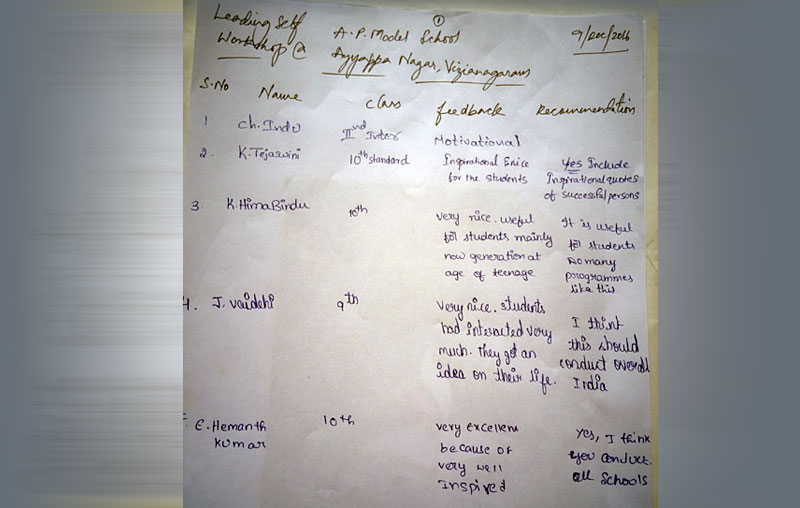 ①
Leading Self A.P. Model School 9/Dec/2016
Workshop @ Ayyappa Nagar, Vizianagaram
S.No Name Class feedback Recommendation
1 Ch. Indu IInd Inter Motivational
2. K. Tejaswini 10th standard Inspirational & nice Yes Include
for the students Inspirational quotes
of successful persons
3 K. Hima Bindu 10th very nice. useful It is useful
for students mainly for students
new generation at so many
age of teenage programmes
like this
4. J. Vaidehi 9th Very nice. students I think
had interacted very this should
much. They got an conduct overall
idea on their life. India
E. Hemanth 10th very excellent yes, I think
Kumar because of you conduct.
very well all schools
Inspired